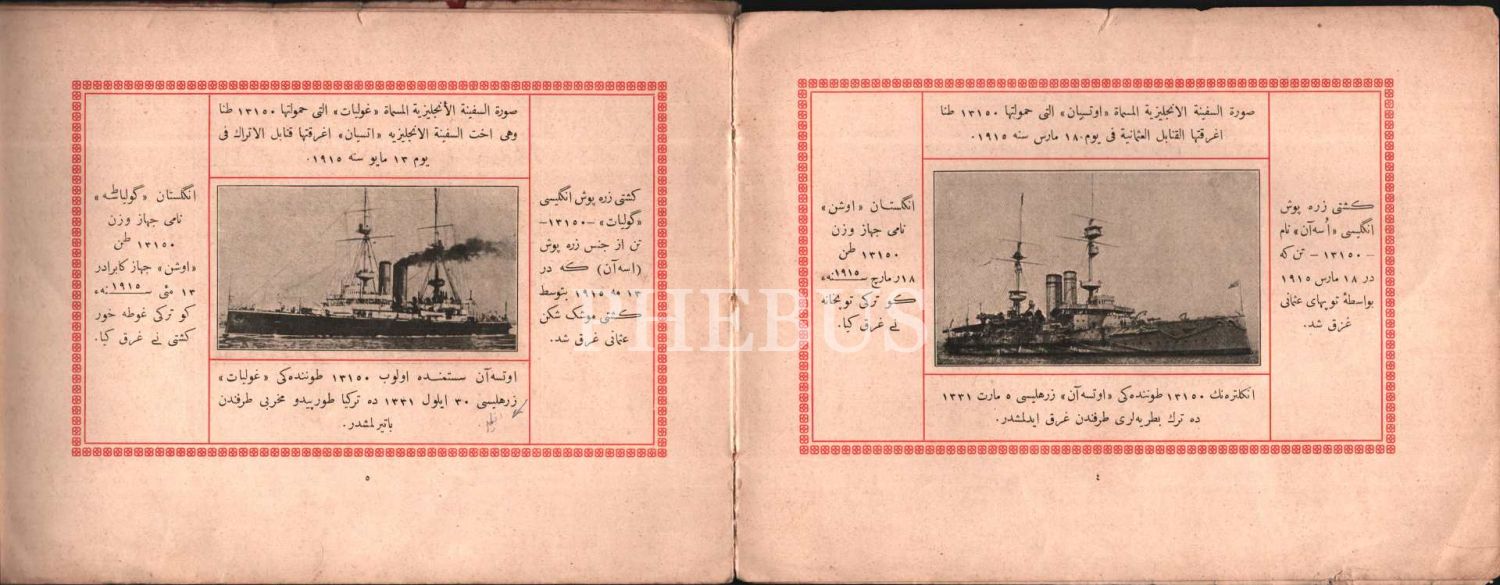 صورة السفينة الانجليزية المسماة «اوتسيان» التى حمولتها ١٣١٥٠ طنا
اغرقتها القنابل العثمانية فى يوم ١٨ مارس سنه ١٩١٥.
كشتى زره پوش
انگليسى «اُسه‌آن» نام
- ١٣١٥٠ - تن كه
در ١٨ مارس ١٩١٥
بواسطۀ توپهاى عثمانى
غرق شد.
انگلستان «اوشن»
نامى جهاز وزن
١٣١٥٠ طن
١٨ مارچ ١٩١٥ سنه‌ء
كو تركى توپخانه
نے غرق كيا.
انكلتره‌نك ١٣١٥٠ طوننده‌كى «اوتسه‌آن» زرهليسى ٥ مارت ١٣٣١
ده ترك بطريه‌لرى طرفندن غرق ايدلمشدر.
٤
صورة السفينة الأنجليزية المسماة «غوليات» التى حمولتها ١٣١٥٠ طنا
وهى اخت السفينة الانجليزيه «اتسيان» اغرقتها قنابل الاتراك فى
يوم ١٣ مايو سنه ١٩١٥.
كشتى زره پوش انگليسى
«گوليات» -١٣١٥٠-
تن از جنس زره پوش
(اسه‌آن) كه در
١٣ مه ١٩١٥ بتوسط
كشتى موشك شكن
عثمانى غرق شد.
انگلستان «گولياتهه»
نامى جهاز وزن
١٣١٥٠ طن
«اوشن» جهاز كا برادر
١٣ مئى ١٩١٥ سنه‌ء
كو تركى غوطه خور
كشتى نے غرق كيا.
اوتسه‌آن سستمنده اولوب ١٣١٥٠ طوننده‌كى «غوليات»
زرهليسى ٣٠ ايلول ١٣٣١ ده تركيا طورپيدو مخربى طرفندن
باتيرلمشدر.
٥
PHEBUS